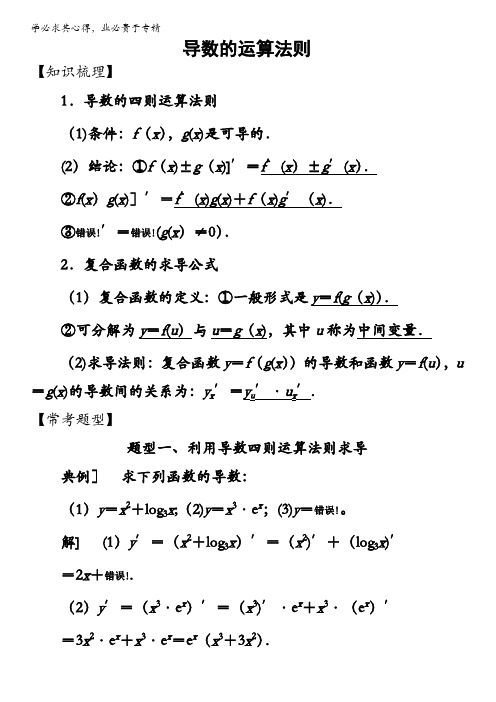 学必求其心得，业必贵于专精
导数的运算法则
【知识梳理】
1．导数的四则运算法则
（1)条件：f（x)，g(x)是可导的．
(2）结论：①f（x)±g（x)]′＝f′（x）±g′(x）．
②f(x）g(x)］′＝f′(x)g(x)＋f（x)g′（x)．
③错误!′＝错误!(g(x）≠0）．
2．复合函数的求导公式
（1）复合函数的定义：①一般形式是y＝f(g（x)）．
②可分解为y＝f(u）与u＝g（x)，其中u称为中间变量．
（2)求导法则：复合函数y＝f（g(x)）的导数和函数y＝f(u)，u
＝g(x)的导数间的关系为：yx′＝yu′·ux′．
【常考题型】
题型一、利用导数四则运算法则求导
典例］ 求下列函数的导数：
（1）y＝x²＋log₃x;（2)y＝x³·eˣ；(3)y＝错误!。
解] (1）y′＝（x²＋log₃x）′＝（x²)′＋（log₃x)′
＝2x＋错误!．
（2）y′＝（x³·eˣ）′＝（x³)′·eˣ＋x³·（eˣ）′
＝3x²·eˣ＋x³·eˣ＝eˣ（x³＋3x²）．